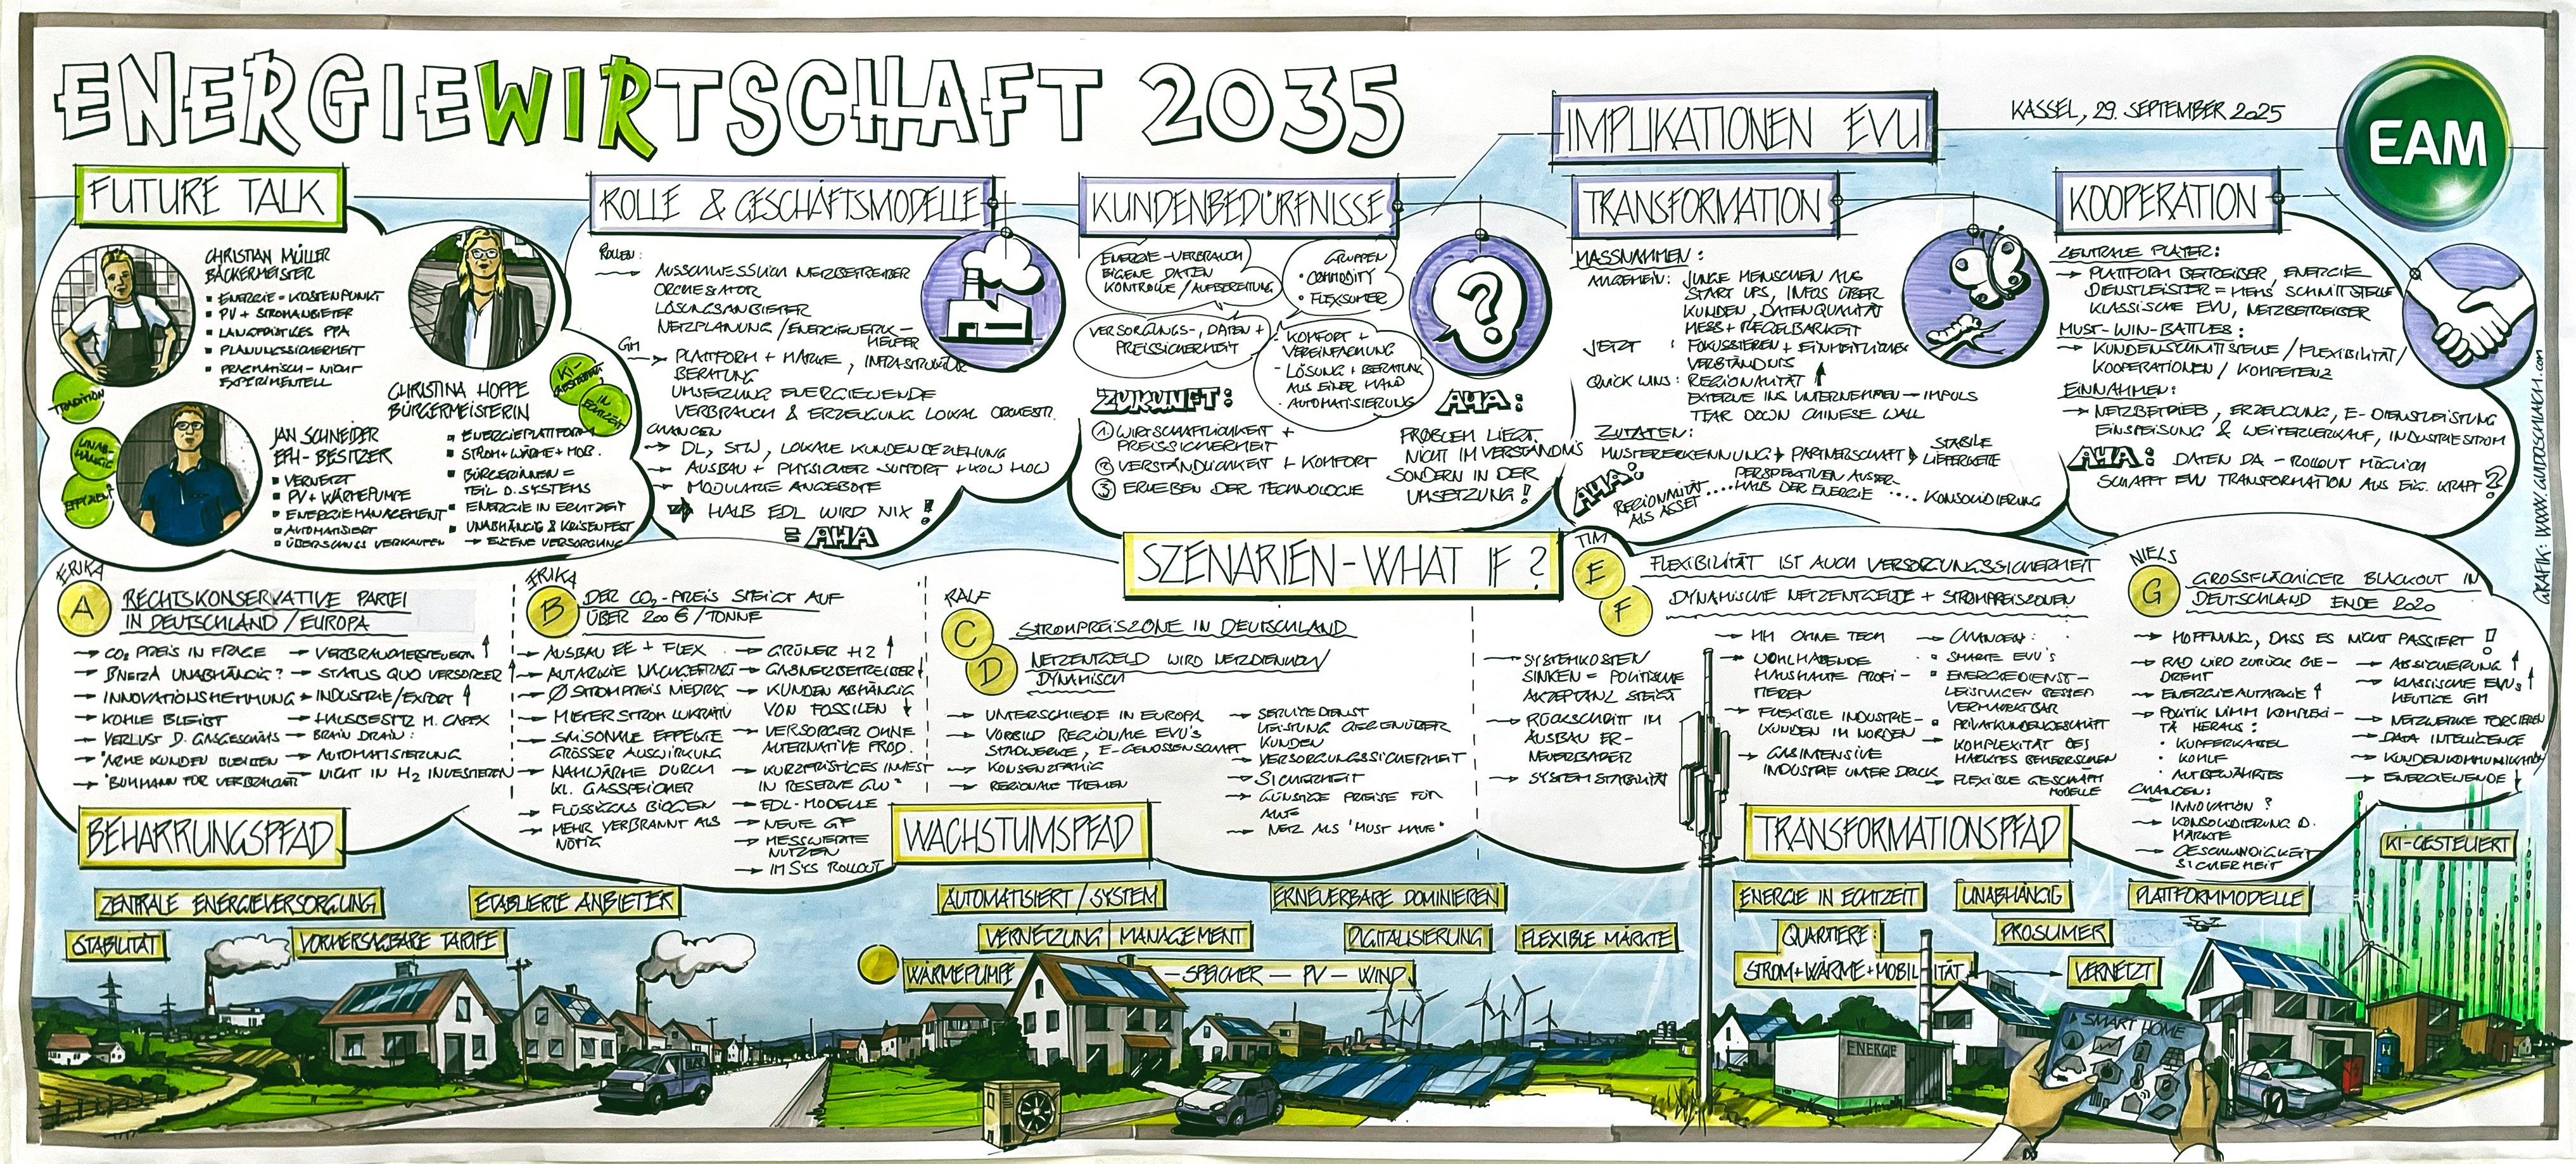 ENERGIEWIRTSCHAFT 2035
IMPLIKATIONEN EVU
KASSEL, 29. SEPTEMBER 2025
EAM
FUTURE TALK
CHRISTIAN MÜLLER
BÄCKERMEISTER
▪ ENERGIE = KOSTENPUNKT
▪ PV + STROMANBIETER
▪ LANGFRISTIGES PPA
▪ PLANUNGSSICHERHEIT
▪ PRAGMATISCH - NICHT
EXPERIMENTELL
TRADITION
CHRISTINA HOPPE
BÜRGERMEISTERIN
KI-
IN
ECHTZEIT
▪ ENERGIEPLATTFORM
▪ STROM + WÄRME + MOB.
▪ BÜRGERINNEN =
TEIL D. SYSTEMS
▪ ENERGIE IN ECHTZEIT
▪ UNABHÄNGIG & KRISENFEST
→ EIGENE VERSORGUNG
UNAB-
HÄNGIG
EFFIZIENT
JAN SCHNEIDER
EFH-BESITZER
▪ VERNETZT
▪ PV + WÄRMEPUMPE
▪ ENERGIEMANAGEMENT
▪ AUTOMATISIERT
▪ ÜBERSCHUSS VERKAUFEN
ROLLE & GESCHÄFTSMODELLE
ROLLEN:
→ AUSSCHLIESSLICH NETZBETREIBER
ORCHESTRATOR
LÖSUNGSANBIETER
NETZPLANUNG / ENERGIEWERK-
HELFER
GM
→ PLATTFORM + MARKE, INFRASTRUKTUR
BERATUNG
UMSETZUNG ENERGIEWENDE
VERBRAUCH & ERZEUGUNG LOKAL ORCHESTR.
CHANCEN
→ DL, STW, LOKALE KUNDENBEZIEHUNG
→ AUSBAU + PHYSISCHER SUPPORT + KNOW HOW
→ MODULARE ANGEBOTE
→ HALB EDL WIRD NIX!
= AHA
KUNDENBEDÜRFNISSE
ENERGIE-VERBRAUCH
EIGENE DATEN
KONTROLLE / AUFBEREITUNG
GRUPPEN
• COMMODITY
• FLEXSUMER
VERSORGUNGS-, DATEN +
PREISSICHERHEIT
• KOMFORT +
VEREINFACHUNG
- LÖSUNG + BERATUNG
AUS EINER HAND
• AUTOMATISIERUNG
?
ZUKUNFT:
① WIRTSCHAFTLICHKEIT +
PREISSICHERHEIT
② VERSTÄNDLICHKEIT + KOMFORT
③ ERLEBEN DER TECHNOLOGIE
AHA:
PROBLEM LIEGT
NICHT IM VERSTÄNDNIS
SONDERN IN DER
UMSETZUNG!
TRANSFORMATION
MASSNAHMEN:
ANGEHEN: JUNGE MENSCHEN AUS
START UPS, INFOS ÜBER
KUNDEN, DATENQUALITÄT
MESS + REGELBARKEIT
JETZT: FOKUSSIEREN + EINHEITLICHES
VERSTÄNDNIS
QUICK WINS: REGIONALITÄT ↑
EXTERNE INS UNTERNEHMEN → IMPULS
TEAR DOWN CHINESE WALL
ZUTATEN:
MUSTERERKENNUNG → PARTNERSCHAFT → STABILE
LIEFERKETTE
AHA:
REGIONALITÄT
ALS ASSET
.... PERSPEKTIVEN AUSSER-
HALB DER ENERGIE .... KONSOLIDIERUNG
KOOPERATION
ZENTRALE PLAYER:
→ PLATTFORM BETREIBER, ENERGIE
DIENSTLEISTER = HEMS SCHNITTSTELLE
KLASSISCHE EVU, NETZBETREIBER
MUST-WIN-BATTLES:
→ KUNDENSCHNITTSTELLE / FLEXIBILITÄT /
KOOPERATIONEN / KOMPETENZ
EINNAHMEN:
→ NETZBETRIEB, ERZEUGUNG, E-DIENSTLEISTUNG
EINSPEISUNG & WEITERVERKAUF, INDUSTRIESTROM
AHA: DATEN DA - ROLLOUT MÖGLICH
SCHAFFT EVU TRANSFORMATION AUS EIG. KRAFT?
GRAFIK: WWW.GUIDOSCHLAICH.com
SZENARIEN - WHAT IF?
ERIKA
A
RECHTSKONSERVATIVE PARTEI
IN DEUTSCHLAND / EUROPA
→ CO₂ PREIS IN FRAGE
→ BNETZA UNABHÄNGIG?
→ INNOVATIONSHEMMUNG
→ KOHLE BLEIBT
→ VERLUST D. GASGESCHÄFTS
→ "ARME KUNDEN BLEIBEN
→ "BUHMANN FÜR VERBRAUCHER"
→ VERBRAUCHERSTEUERN ↑
→ STATUS QUO VERSORGER ↑
→ INDUSTRIE / EXPORT ↑
→ HAUSBESITZ M. CAPEX
→ BRAIN DRAIN:
→ AUTOMATISIERUNG
→ NICHT IN H2 INVESTIEREN
ERIKA
B
DER CO₂-PREIS STEIGT AUF
ÜBER 200 € / TONNE
→ AUSBAU EE + FLEX
→ AUTARKIE NACHGEFRAGT
→ Ø STROMPREIS NIEDRIG
→ MIETERSTROM LUKRATIV
→ SAISONALE EFFEKTE
GRÖSSER AUSWIRKUNG
→ NAHWÄRME DURCH
KL. GASSPEICHER
→ FLÜSSIGGAS BIOGEN
→ MEHR VERBRANNT ALS
NÖTIG
→ GRÜNER H2 ↑
→ GASNETZBETREIBER ↓
→ KUNDEN ABHÄNGIG
VON FOSSILEN ↓
→ VERSORGER OHNE
ALTERNATIVE PROD.
→ KURZFRISTIGES INVEST
IN RESERVE GW"
→ EDL-MODELLE
→ NEUE GF
→ MESSWERTE
NUTZEN
→ IMSYS ROLLOUT
RALF
C
STROMPREISZONE IN DEUTSCHLAND
D
NETZENTGELD WIRD NETZDIENLICH/
DYNAMISCH
→ UNTERSCHIEDE IN EUROPA
→ VORBILD REGIONALE EVU'S
STADWERKE, E-GENOSSENSCHAFT
→ KONSENZFÄHIG
→ REGIONALE THEMEN
→ SERVICE DIENST
LEISTUNG GEGENÜBER
KUNDEN
→ VERSORGUNGSSICHERHEIT
→ SICHERHEIT
→ GÜNSTIGE PREISE FÜR
ALLE
→ NETZ ALS "MUST HAVE"
TIM
E
FLEXIBILITÄT IST AUCH VERSORGUNGSSICHERHEIT
F
DYNAMISCHE NETZENTGELTE + STROMPREISZONEN
→ SYSTEMKOSTEN
SINKEN = POLITISCHE
AKZEPTANZ STEIGT
→ RÜCKSCHRITT IM
AUSBAU ER-
NEUERBARER
→ SYSTEMSTABILITÄT
→ HH OHNE TECH
→ WOHLHABENDE
HAUSHALTE PROFI-
TIEREN
→ FLEXIBLE INDUSTRIE-
KUNDEN IM NORDEN
→ GASINTENSIVE
INDUSTRIE UNTER DRUCK
→ CHANCEN:
▫ SMARTE EVU'S
▫ ENERGIEDIENST-
LEISTUNGEN BESSER
VERMARKTBAR
▫ PRIVATKUNDENGESCHÄFT
→ KOMPLEXITÄT DES
MARKTES BEHERRSCHEN
→ FLEXIBLE GESCHÄFT
MODELLE
NIELS
G
GROSSFLÄCHIGER BLACKOUT IN
DEUTSCHLAND ENDE 2020
→ HOFFNUNG, DASS ES NICHT PASSIERT!
→ RAD WIRD ZURÜCK GE-
DREHT
→ ENERGIEAUTARKIE ↑
→ POLITIK NIMM KOMPLEXI-
TÄ HERAUS:
• KUPFERKABEL
• KOHLE
• ALTBEWÄHRTES
CHANCEN:
→ INNOVATION?
→ KONSOLIDIERUNG D.
MÄRKTE
→ GESCHWINDIGKEIT
SICHERHEIT
→ ABSICHERUNG ↑
→ KLASSISCHE EVU's ↑
HEUTIGE GM
→ NETZWERKE FORCIEREN
→ DATA INTELLIGENCE
→ KUNDENKOMMUNIKATION
→ ENERGIEWENDE ↓
BEHARRUNGSPFAD
ZENTRALE ENERGIEVERSORGUNG
ETABLIERTE ANBIETER
STABILITÄT
VORHERSAGBARE TARIFE
WACHSTUMSPFAD
AUTOMATISIERT / SYSTEM
ERNEUERBARE DOMINIEREN
VERNETZUNG | MANAGEMENT
DIGITALISIERUNG
FLEXIBLE MÄRKTE
WÄRMEPUMPE - SPEICHER - PV - WIND
TRANSFORMATIONSPFAD
KI-GESTEUERT
ENERGIE IN ECHTZEIT
UNABHÄNGIG
PLATTFORMMODELLE
QUARTIERE:
PROSUMER
STROM+WÄRME+MOBILITÄT
VERNETZT
ENERGIE
SMART HOME